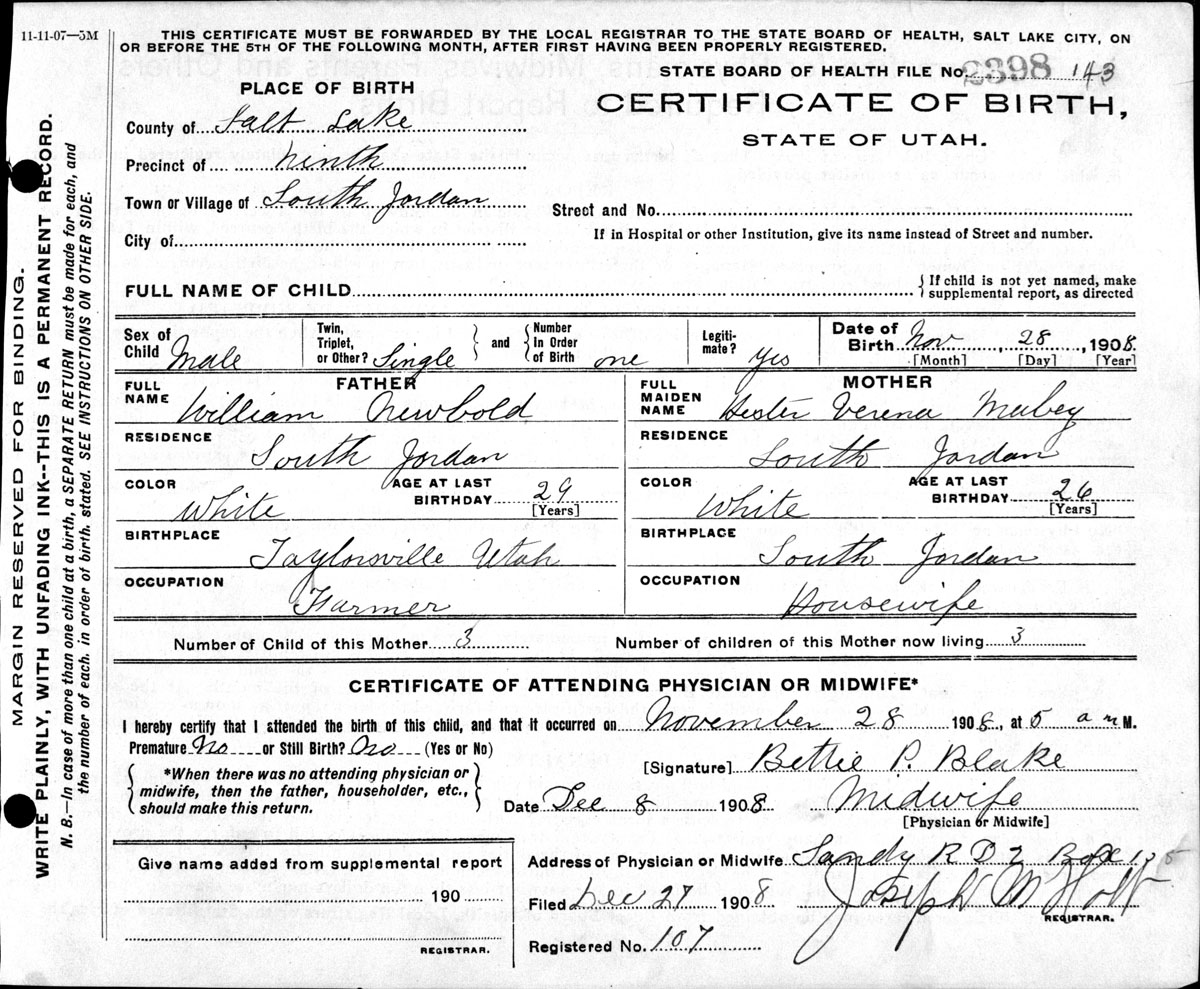 11-11-07—5M
THIS CERTIFICATE MUST BE FORWARDED BY THE LOCAL REGISTRAR TO THE STATE BOARD OF HEALTH, SALT LAKE CITY, ON
OR BEFORE THE 5TH OF THE FOLLOWING MONTH, AFTER FIRST HAVING BEEN PROPERLY REGISTERED.
STATE BOARD OF HEALTH FILE No. 143
PLACE OF BIRTH
CERTIFICATE OF BIRTH,
STATE OF UTAH.
County of Salt Lake
Precinct of Ninth
Town or Village of South Jordan
Street and No.
City of
If in Hospital or other Institution, give its name instead of Street and number.
FULL NAME OF CHILD { If child is not yet named, make
supplemental report, as directed
Sex of Child Male
Twin, Triplet, or Other? Single } and { Number In Order of Birth one
Legiti-mate? Yes
Date of Birth Nov, 28, 1908
[Month] [Day] [Year]
FATHER
FULL NAME William Newbold
RESIDENCE South Jordan
COLOR White AGE AT LAST BIRTHDAY 29
[Years]
BIRTHPLACE Taylorsville Utah
OCCUPATION Farmer
MOTHER
FULL MAIDEN NAME Hester Verena Mabey
RESIDENCE South Jordan
COLOR White AGE AT LAST BIRTHDAY 26
[Years]
BIRTHPLACE South Jordan
OCCUPATION Housewife
Number of Child of this Mother 3 Number of children of this Mother now living 3
CERTIFICATE OF ATTENDING PHYSICIAN OR MIDWIFE*
I hereby certify that I attended the birth of this child, and that it occurred on November 28 1908, at 5 a m M.
Premature No or Still Birth? No (Yes or No)
{ *When there was no attending physician or
midwife, then the father, householder, etc.,
should make this return. }
[Signature] Bettie P. Blake
Date Dec 8 1908 Midwife
[Physician or Midwife]
Give name added from supplemental report
190
REGISTRAR.
Address of Physician or Midwife Sandy R D 2 Box
Filed Dec 27 1908 Joseph M Holt
REGISTRAR.
Registered No. 107
MARGIN RESERVED FOR BINDING.
WRITE PLAINLY, WITH UNFADING INK--THIS IS A PERMANENT RECORD.
N. B.—In case of more than one child at a birth, a SEPARATE RETURN must be made for each, and
the number of each, in order of birth, stated. SEE INSTRUCTIONS ON OTHER SIDE.